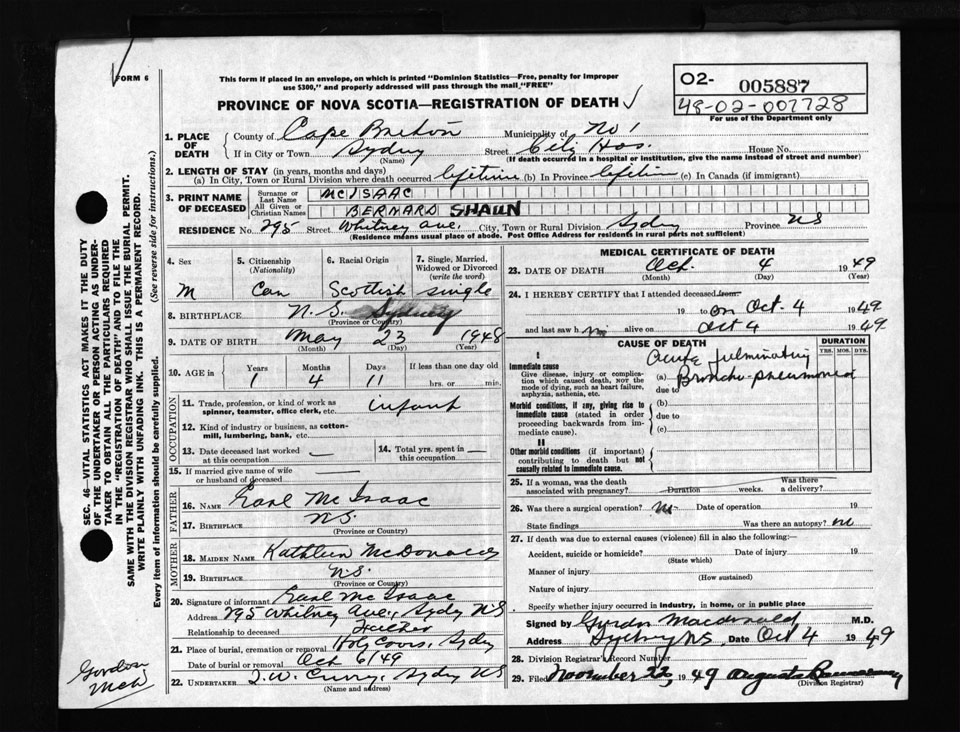 FORM 6
This form if placed in an envelope, on which is printed "Dominion Statistics—Free, penalty for improper
use $300," and properly addressed will pass through the mail "FREE"
PROVINCE OF NOVA SCOTIA—REGISTRATION OF DEATH
02- 005887
48-02-007728
For use of the Department only
SEC. 46—VITAL STATISTICS ACT MAKES IT THE DUTY
OF THE UNDERTAKER OR PERSON ACTING AS UNDER-
TAKER TO OBTAIN ALL THE PARTICULARS REQUIRED
IN THE "REGISTRATION OF DEATH" AND TO FILE THE
SAME WITH THE DIVISION REGISTRAR WHO SHALL ISSUE THE BURIAL PERMIT.
WRITE PLAINLY WITH UNFADING INK. THIS IS A PERMANENT RECORD.
Every item of information should be carefully supplied. (See reverse side for instructions.)
1. PLACE OF DEATH County of Cape Breton Municipality of No 1
If in City or Town Sydney (Name) Street City Hos. House No.
(If death occurred in a hospital or institution, give the name instead of street and number)
2. LENGTH OF STAY (in years, months and days)
(a) In City, Town or Rural Division where death occurred lifetime (b) In Province lifetime (c) In Canada (if immigrant)
3. PRINT NAME OF DECEASED Surname or Last Name MCISAAC
All Given or Christian Names BERNARD SHAUN
RESIDENCE No. 295 Street Whitney Ave. City, Town or Rural Division Sydney Province NS
(Residence means usual place of abode. Post Office Address for residents in rural parts not sufficient)
4. Sex M
5. Citizenship (Nationality) Can
6. Racial Origin Scottish
7. Single, Married, Widowed or Divorced (write the word) single
8. BIRTHPLACE N.S. Sydney
(Province or Country)
9. DATE OF BIRTH May 23 1948
(Month) (Day) (Year)
10. AGE IN Years 1 Months 4 Days 11 If less than one day old hrs. or min.
OCCUPATION
11. Trade, profession, or kind of work as spinner, teamster, office clerk, etc. infant
12. Kind of industry or business, as cotton-mill, lumbering, bank, etc.
13. Date deceased last worked at this occupation —
14. Total yrs. spent in this occupation —
15. If married give name of wife or husband of deceased —
FATHER
16. NAME Earl McIsaac
17. BIRTHPLACE N.S.
(Province or Country)
MOTHER
18. MAIDEN NAME Kathleen McDonald
19. BIRTHPLACE N.S.
(Province or Country)
20. Signature of informant Earl McIsaac
Address 295 Whitney Ave., Sydney NS
Relationship to deceased Father
21. Place of burial, cremation or removal Holy Cross, Sydney
Date of burial or removal Oct 6/49
22. UNDERTAKER T.W. Curry, Sydney NS
(Name and address)
Gordon
McD
MEDICAL CERTIFICATE OF DEATH
23. DATE OF DEATH Oct. 4 1949
(Month) (Day) (Year)
24. I HEREBY CERTIFY that I attended deceased from
19 to on Oct. 4 1949
and last saw h m alive on Oct 4 1949
CAUSE OF DEATH
DURATION
YRS. MOS. DYS.
I
Immediate cause
Give disease, injury or complication which caused death, NOT the mode of dying, such as heart failure, asphyxia, asthenia, etc.
(a) Acute fulminating Broncho-pneumonia
due to
Morbid conditions, if any, giving rise to immediate cause (stated in order proceeding backwards from immediate cause).
(b)
due to
(c)
II
Other morbid conditions (if important) contributing to death but not causally related to immediate cause.
25. If a woman, was the death associated with pregnancy? Duration weeks. Was there a delivery?
26. Was there a surgical operation? no Date of operation 19
State findings Was there an autopsy? no
27. If death was due to external causes (violence) fill in also the following:—
Accident, suicide or homicide? Date of injury 19
(State which)
Manner of injury
(How sustained)
Nature of injury
Specify whether injury occurred in industry, in home, or in public place
Signed by Gordon Macdonald M.D.
Address Sydney NS. Date Oct 4 1949
28. Division Registrar's Record Number
29. Filed November 1949 Augusta
(Division Registrar)